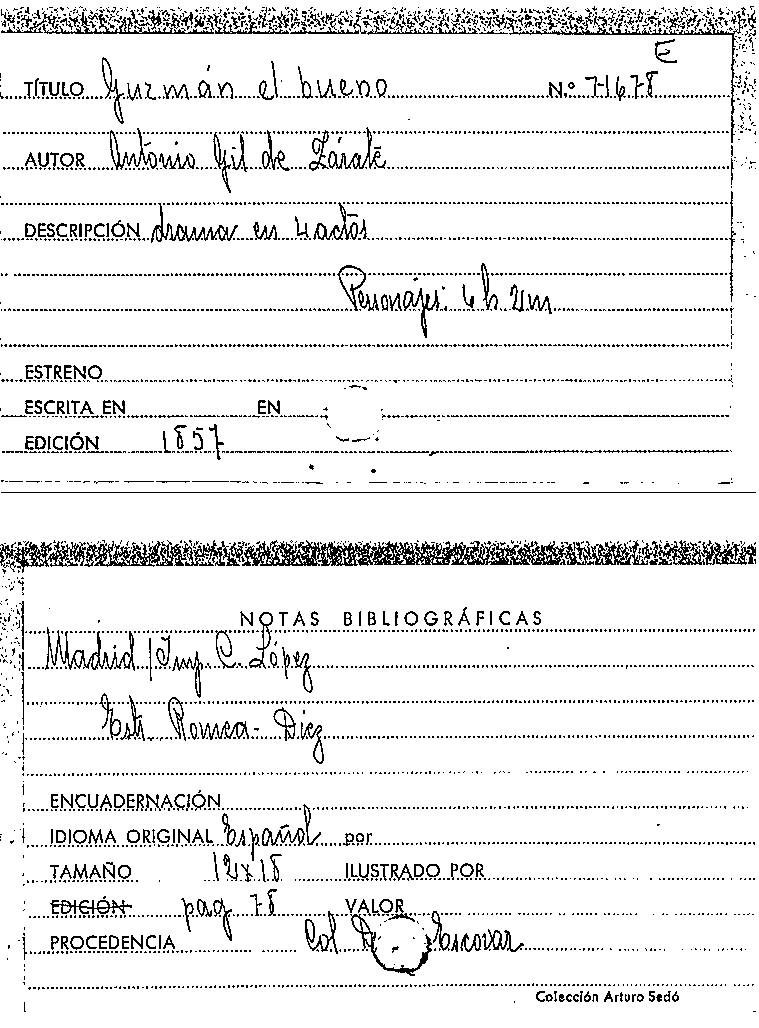 E
TÍTULO Guzmán el bueno N.º 71678
AUTOR Antonio Gil de Zárate
DESCRIPCIÓN drama en 4 actos
Personajes: 6 h. 2 m
ESTRENO
ESCRITA EN EN
EDICIÓN 1857
NOTAS BIBLIOGRÁFICAS
Madrid / Imp. C. López
Estr. Romea - Diez
ENCUADERNACIÓN
IDIOMA ORIGINAL Español por
TAMAÑO 12x18 ILUSTRADO POR
EDICIÓN pag 78 VALOR
PROCEDENCIA Col. Escovar
Colección Arturo Sedó